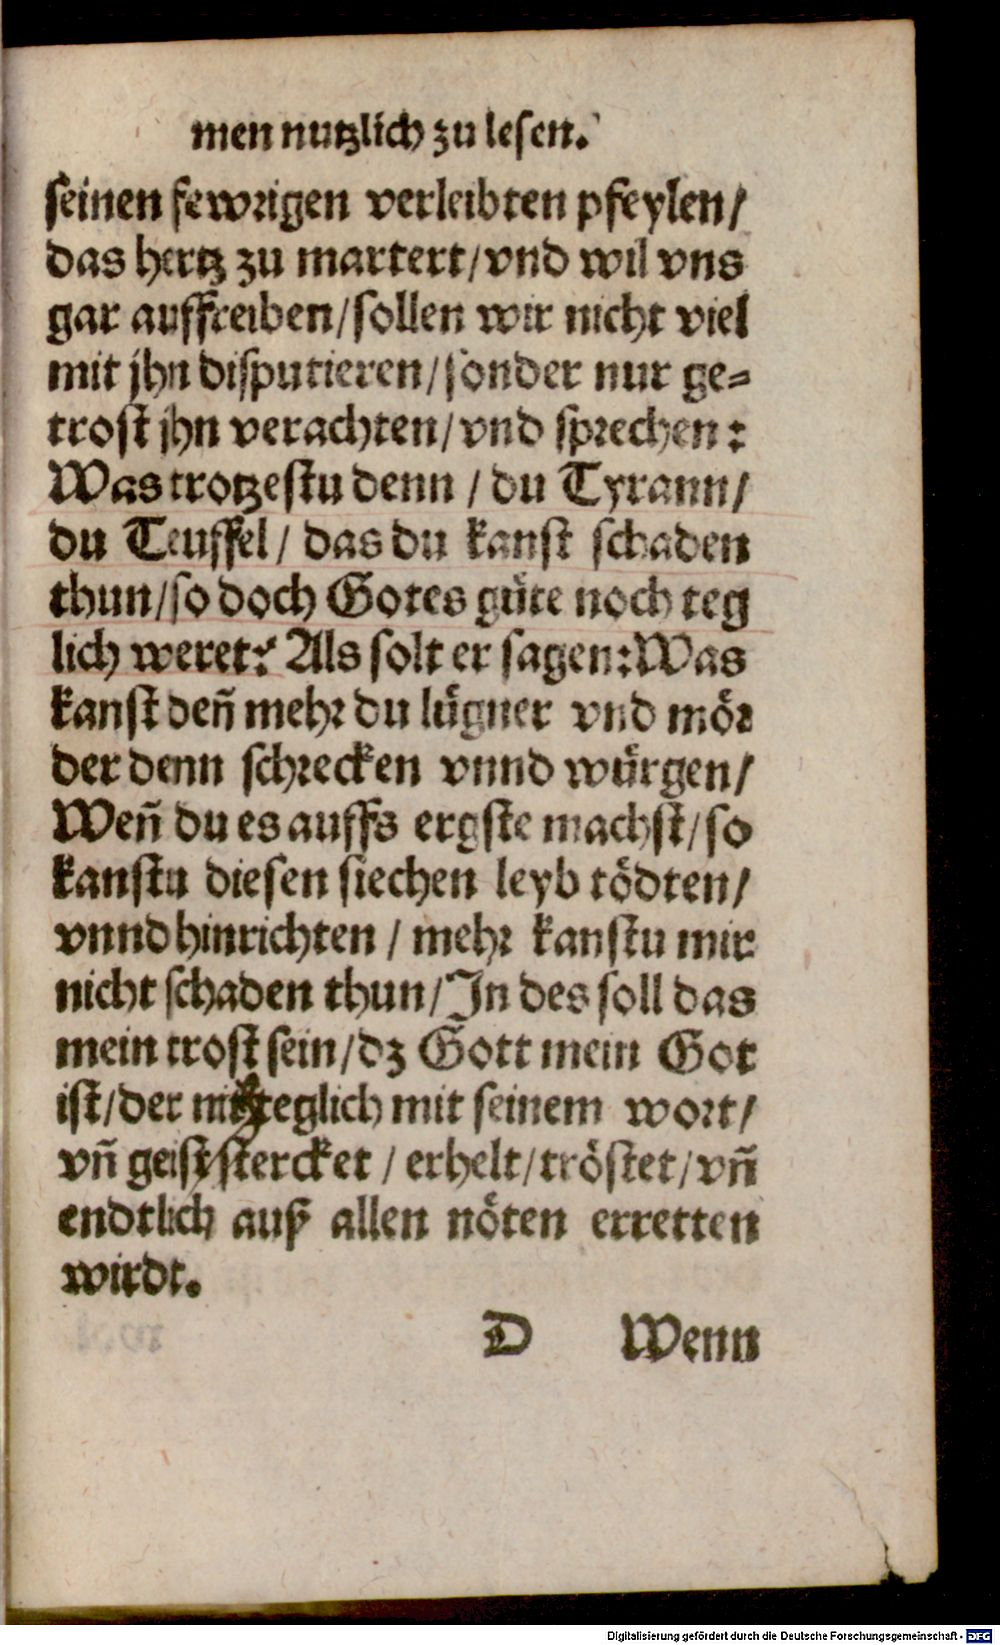 men nutzlich zu lesen.
seinen fewrigen verleibten pfeylen/
das hertz zu martert/vnd wil vns
gar auffreiben/sollen wir nicht viel
mit jhn disputieren/sonder nur ge=
trost jhn verachten/vnd sprechen:
Was trotzestu denn / du Tyrann/
du Teuffel/ das du kanst schaden
thun/so doch Gotes güte noch teg
lich weret? Als solt er sagen:Was
kanst deñ mehr du lügner vnd mör
der denn schrecken vnnd würgen/
Weñ du es auffs ergste machst/so
kanstu diesen siechen leyb tödten/
vnnd hinrichten / mehr kanstu mir
nicht schaden thun/In des soll das
mein trost sein/dz Gott mein Got
ist/der teglich mit seinem wort/
vñ geist stercket / erhelt/tröstet/vñ
endtlich auß allen nöten erretten
wirdt.
D Wenn
Digitalisierung gefördert durch die Deutsche Forschungsgemeinschaft - DFG